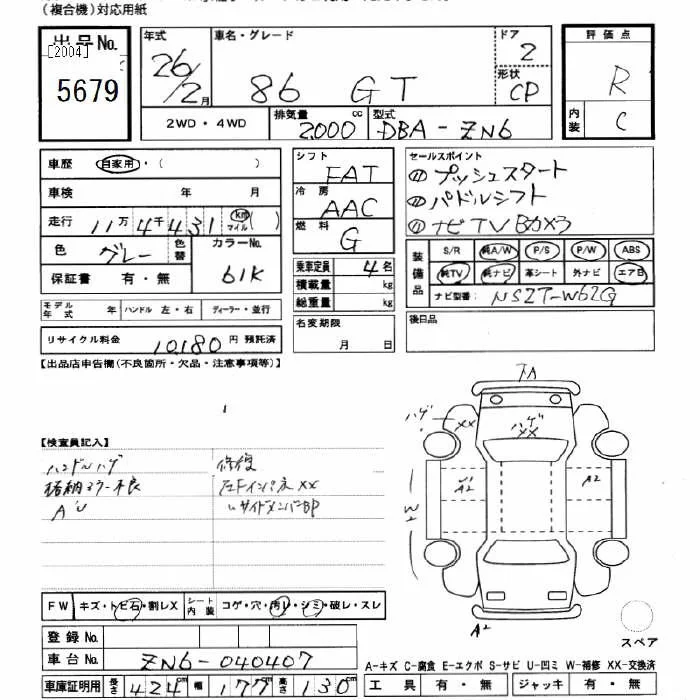 (複合機)対応用紙
出品No. [2004] 5679
年式 26/2月
車名・グレード 86 GT
ドア 2
形状 CP
評価点 R
内装 C
2WD・4WD
排気量 2000 cc
型式 DBA-ZN6
車歴 自家用・( )
車検 年 月
走行 11万4千431 km マイル ( )
色 グレー 色替
カラーNo. 61K
保証書 有・無
シフト FAT
冷房 AAC
燃料 G
乗車定員 4名
積載量 kg
総重量 kg
名変期限 月 日
セールスポイント
(1) プッシュスタート
(1) パドルシフト
(1) ナビTV Bカメラ
装備品 S/R 純A/W P/S P/W ABS
純TV 純ナビ 革シート 外ナビ エア日
ナビ型番: NSZT-W62G
モデル年式 年 ハンドル 左・右 ディーラー・並行
リサイクル料金 10,180円 預託済
後日品
【出品店申告欄(不良箇所・欠品・注意事項等)】
【検査員記入】
ハンドルハゲ
格納ミラー不良
A'U
修復
左Fインパネ XX
〃サイドメンバーBP
FA
ハゲ XX
ハゲ XX
A2
A2
W
A2
FW キズ・トビ石・割レX
シート内装 コゲ・穴・汚レ・シミ・破レ・スレ
登録No.
車台No. ZN6-040407
車庫証明用 長さ 424cm 幅 177cm 高さ 130cm
スペア
A-キズ C-腐食 E-エクボ S-サビ U-凹ミ W-補修 XX-交換済
工具 有・無 ジャッキ 有・無